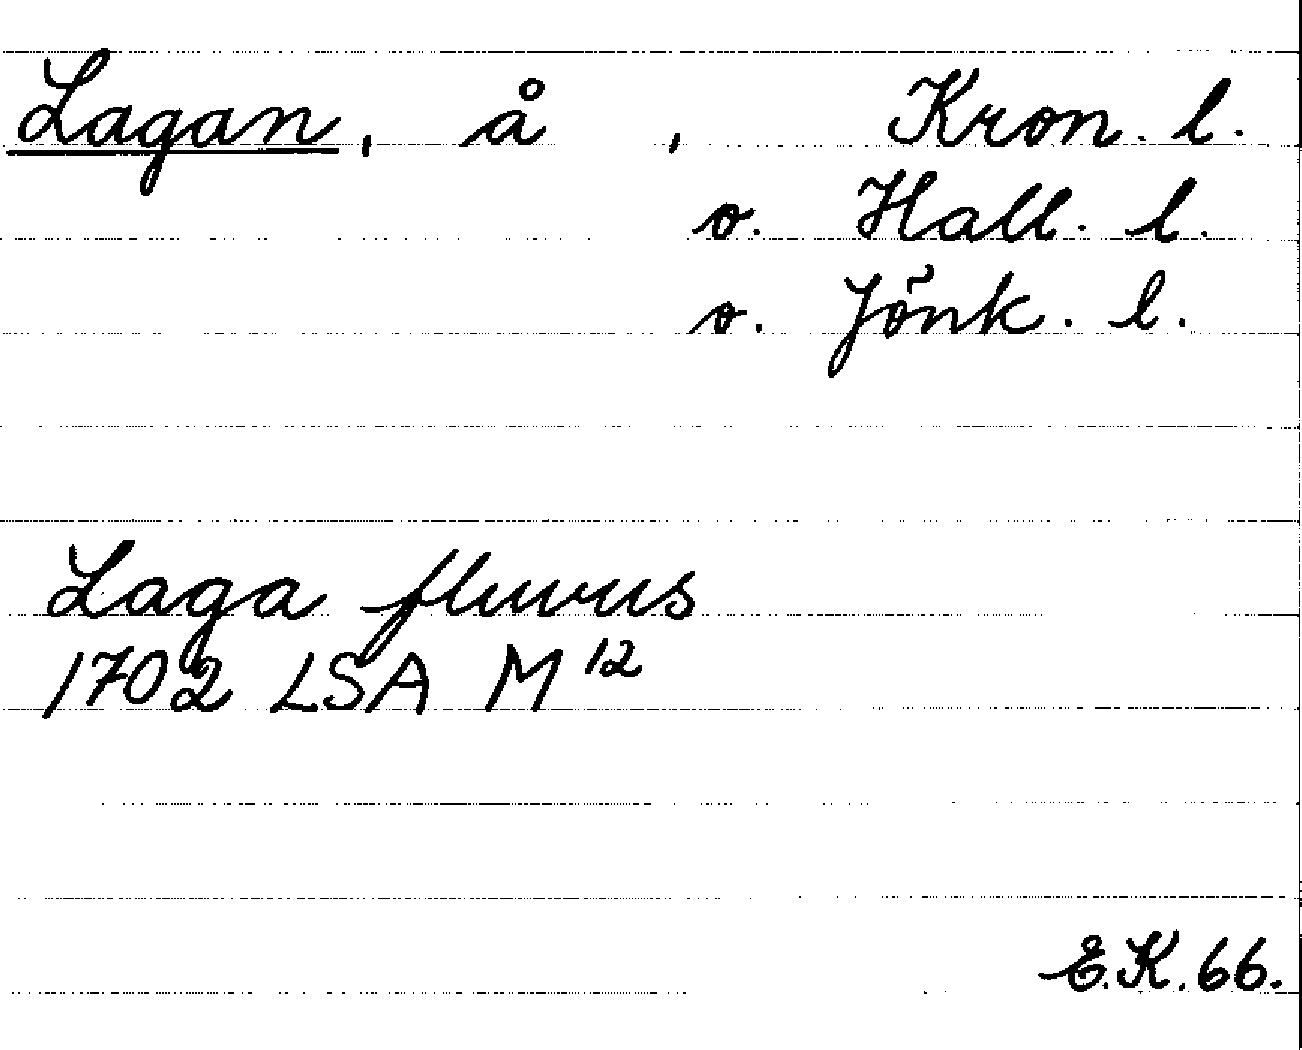 Lagan, å , Kron. l.
o. Hall. l.
o. Jönk. l.
Laga fluvius
1702 LSA M 12
E.K. 66.